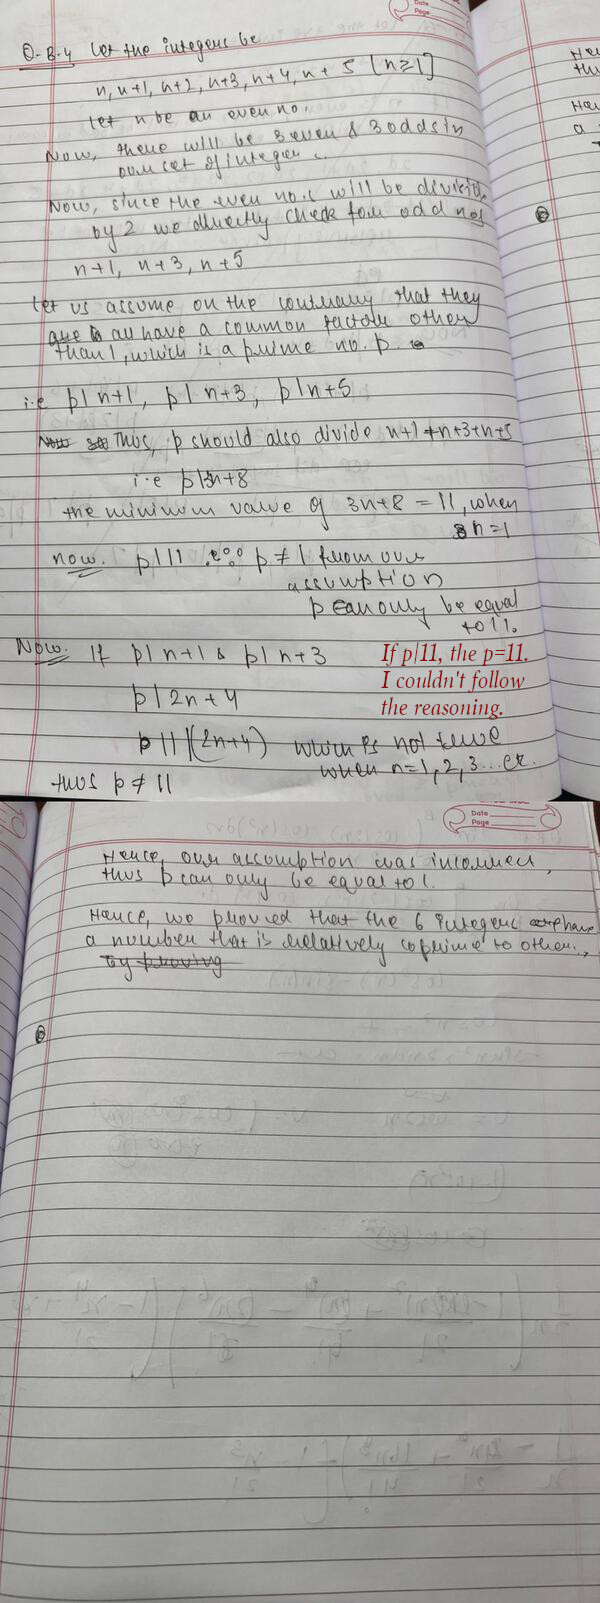 Date
Page
Q-B.4 Let the integers be
n, n+1, n+2, n+3, n+4, n+5 [n≥1]
Let n be an even no.
Now, there will be 3 even & 3 odds in
our set of integer
Now, since the even no.s will be divisible
by 2 we directly check for odd nos
n+1, n+3, n+5
Let us assume on the contrary that they
are all have a common factor other
than 1, which is a prime no. p.
i.e p|n+1, p|n+3, p|n+5
Now Thus, p should also divide n+1+n+3+n+5
i.e p|3n+8
the minimum value of 3n+8 = 11, when
n=1
now. p|11 p≠1 from our
assumption
p can only be equal
to 11.
Now. If p|n+1 & p|n+3
p|2n+4
p 11|(2n+4) which is not true
when n=1,2,3...
thus p≠11
If p|11, the p=11.
I couldn't follow
the reasoning.
Date
Page
Hence, our assumption was incorrect,
thus p can only be equal to 1.
Hence, we proved that the 6 integers have
a number that is relatively coprime to others.
By proving